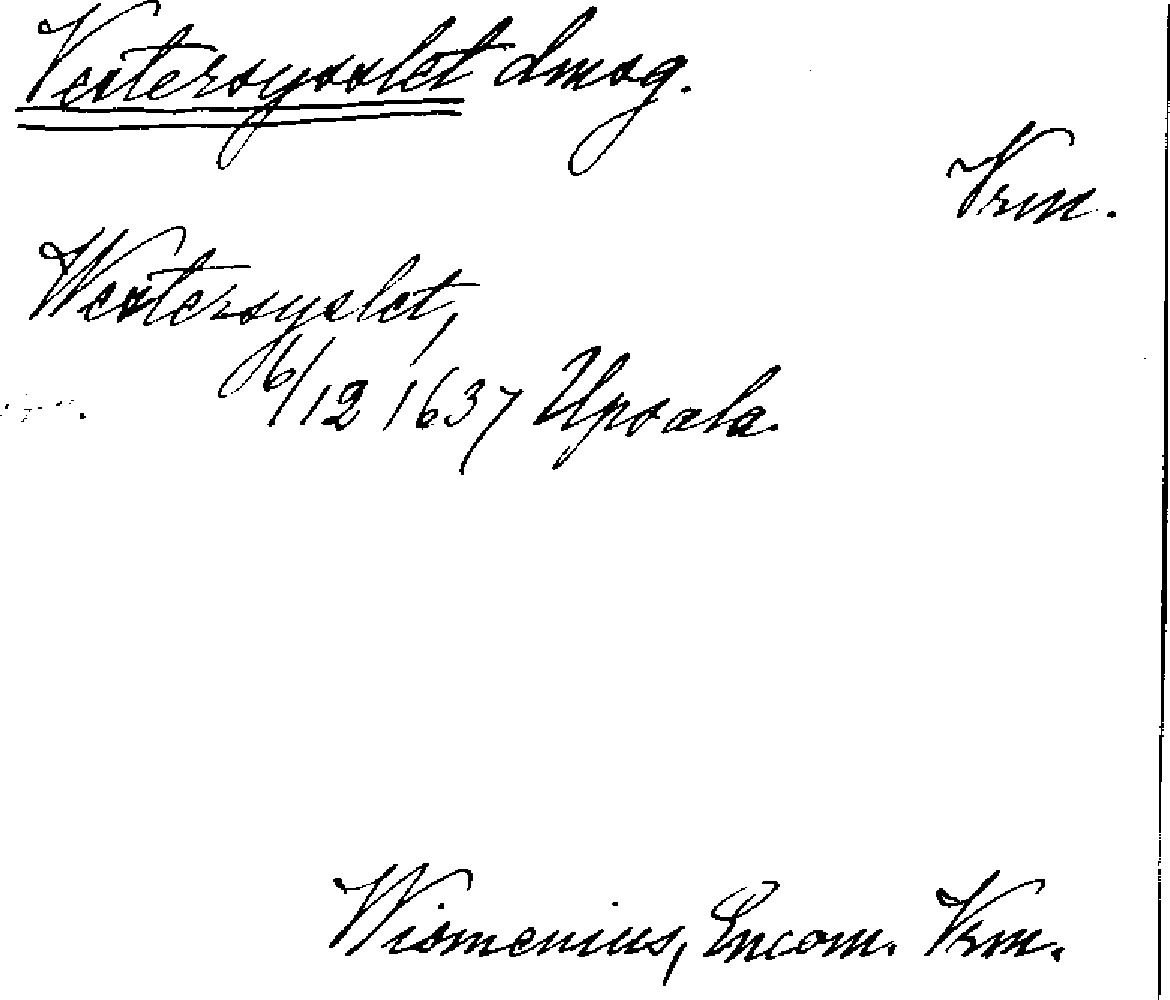 Vestersysslet dmsg.
Vrm.
Westersyslet,
16/12 1637 Upsala.
Wismenius, Encom. Vrm.